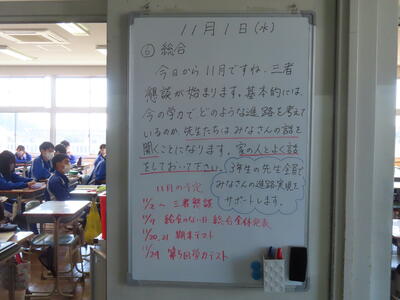 11月1日(水)
⑥ 総合
今日から11月ですね。三者
懇談が始まります。基本的には、
今の学力でどのような進路を考えて
いるのか、先生たちはみなさんの話を
聞くことになります。家の人とよく話
をしておいて下さい。
3年生の先生全員で
みなさんの進路実現を
サポートします。
11月の予定
11/2〜 三者懇談
総合全体発表
11/20.21 期末テスト
11/29 第5回学力テスト